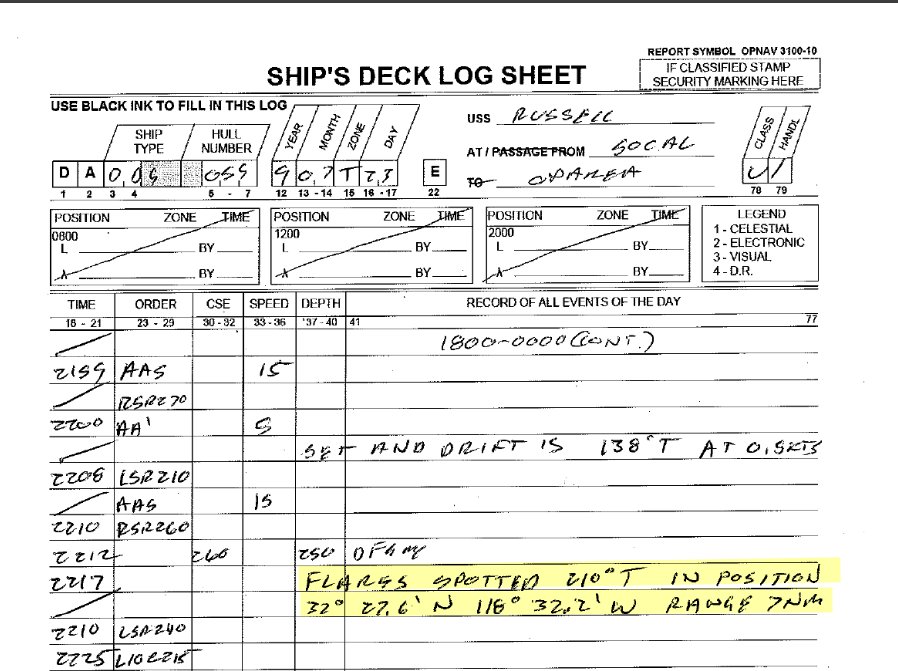 REPORT SYMBOL OPNAV 3100-10
IF CLASSIFIED STAMP
SECURITY MARKING HERE
SHIP'S DECK LOG SHEET
USE BLACK INK TO FILL IN THIS LOG
SHIP TYPE HULL NUMBER YEAR MONTH ZONE DAY
USS RUSSELL
AT / PASSAGE FROM SOCAL
TO OPAREA
CLASS HANDL
D A 059 9 07 T 23 E U 1
1 2 3 4 5 - 7 12 13 - 14 15 16 - 17 22 78 79
POSITION ZONE TIME
0800
L BY
BY
POSITION ZONE TIME
1200
L BY
BY
POSITION ZONE TIME
2000
L BY
BY
LEGEND
1 - CELESTIAL
2 - ELECTRONIC
3 - VISUAL
4 - D.R.
TIME ORDER CSE SPEED DEPTH RECORD OF ALL EVENTS OF THE DAY
18 - 21 23 - 29 30 - 32 33 - 36 37 - 40 41 77
1800-0000 (CONT.)
2159 AA5 15
RSR270
2200 AA1 5
SET AND DRIFT IS 138°T AT 0.5KTS
2208 LSR210
AA5 15
2210 RSR260
2212 260 250
2217 FLARES SPOTTED 210°T IN POSITION
32° 27.6' N 118° 32.2' W RANGE 7NM
2210 LSR240
2225